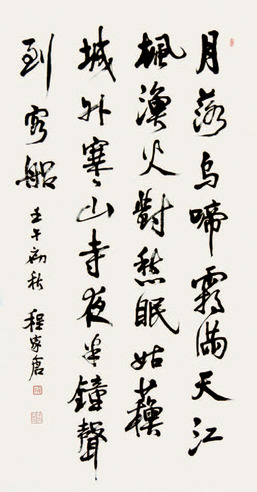 月落烏啼霜滿天江
楓漁火對愁眠姑蘇
城外寒山寺夜半鐘聲
到客船
壬午初秋 程家